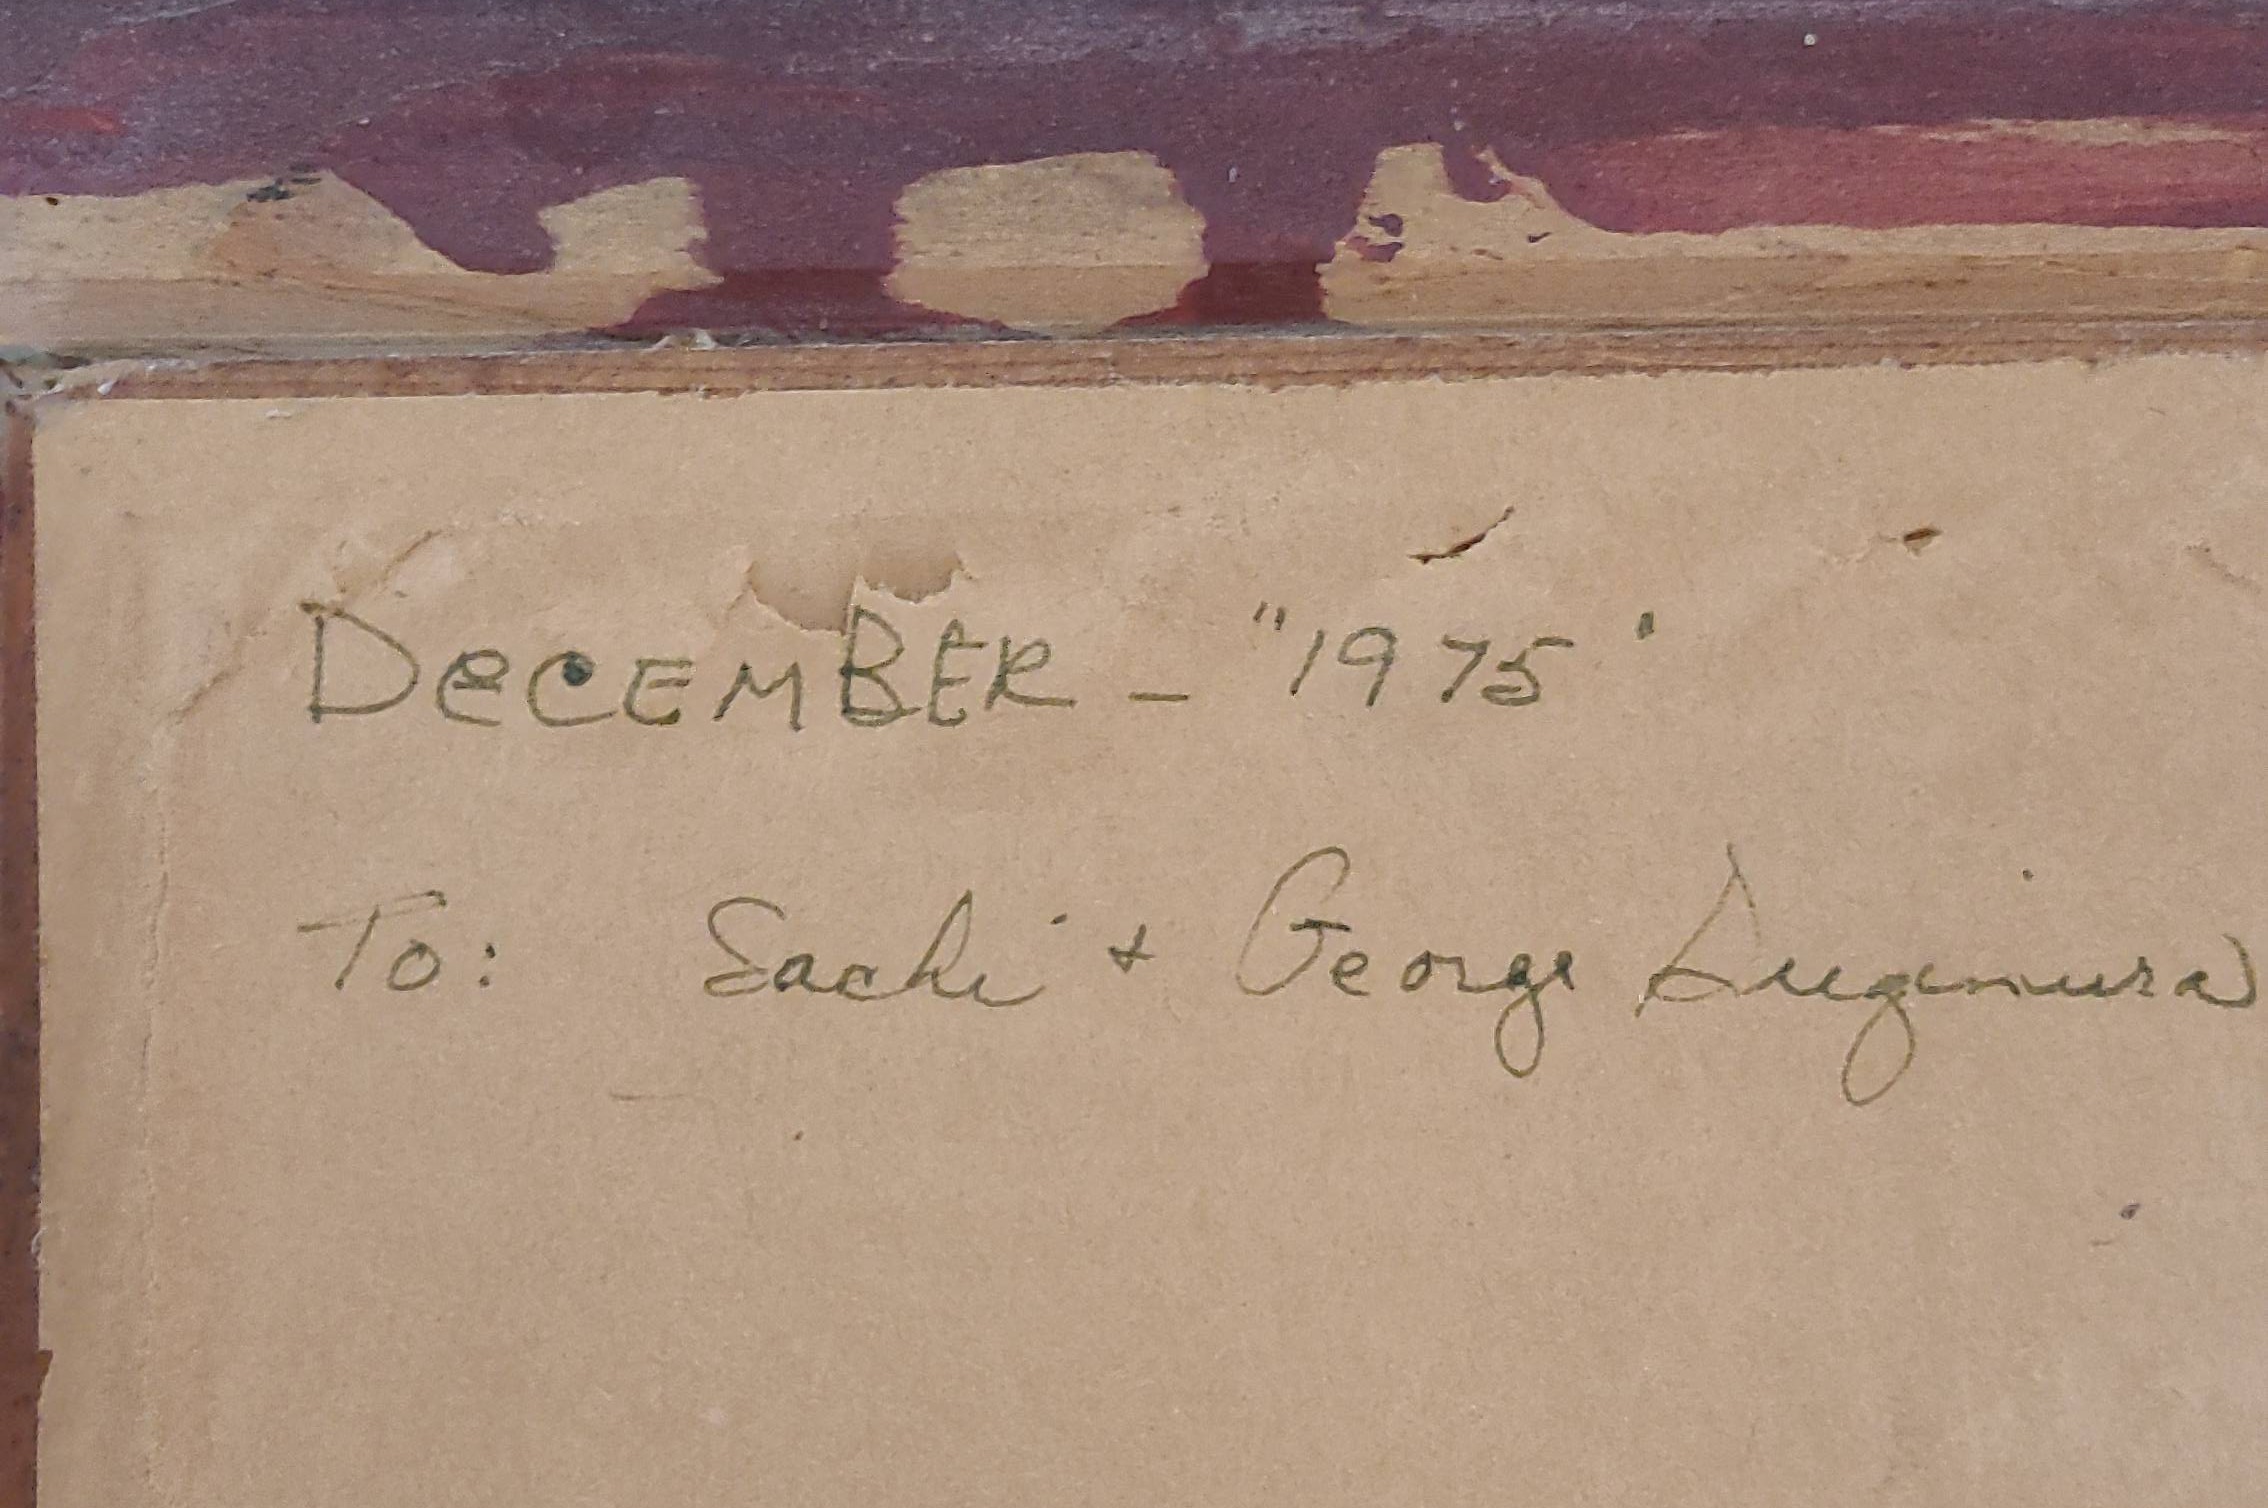 DeCEMBER - "1975"
To: Sachi + George Sugimura